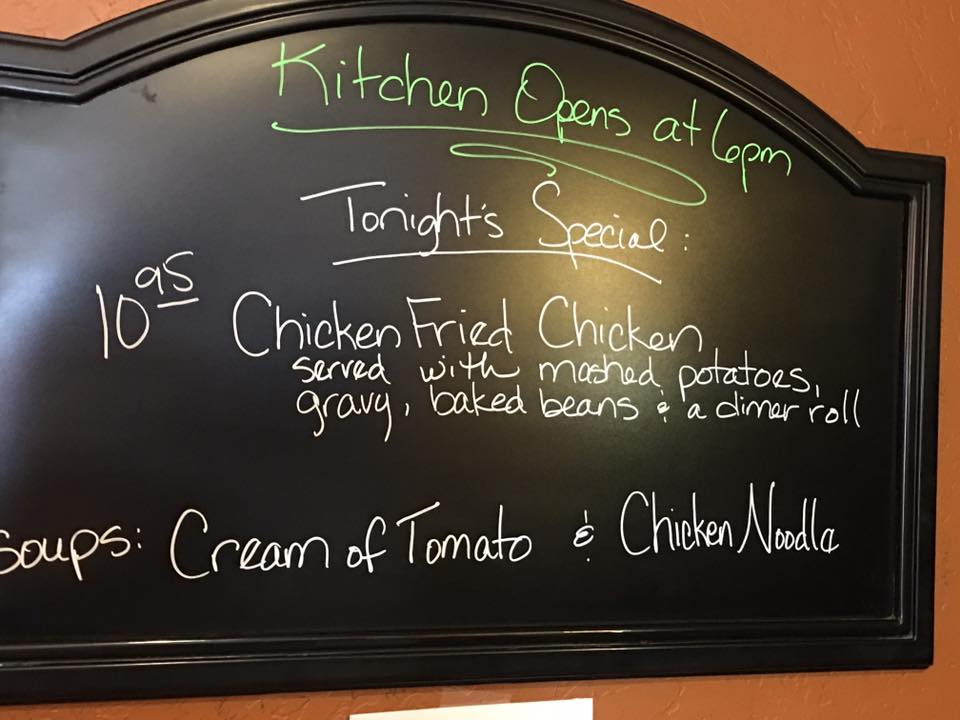 Kitchen Opens at 6pm
Tonight's Special:
10 95 Chicken Fried Chicken
served with mashed potatoes,
gravy, baked beans & a dinner roll
Soups: Cream of Tomato & Chicken Noodle